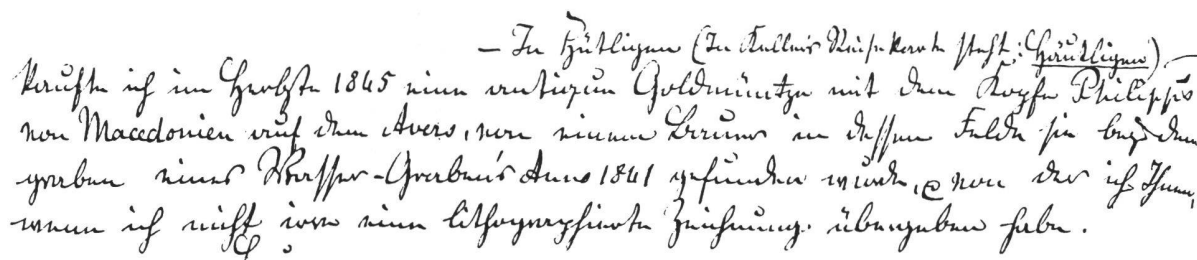 – In Hütligen (In Kellers Reisekarte steht: Häutligen) –
kaufte ich im Herbste 1845 eine antique Goldmüntze mit dem Kopfe Philipps
von Macedonien auf dem Avers, von einem Bauer in dessen Felde sie bey dem
graben eines Wasser-Graben's Anno 1841 gefunden wurde, & von der ich Ihnen,
wenn ich nicht irre eine lithographierte Zeichnung übergeben habe.